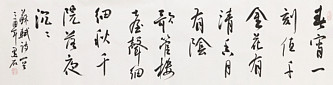 春宵一
刻值千
金花有
清香月
有陰
歌管樓
臺聲細
細秋千
院落夜
沉沉
蘇軾詩一首